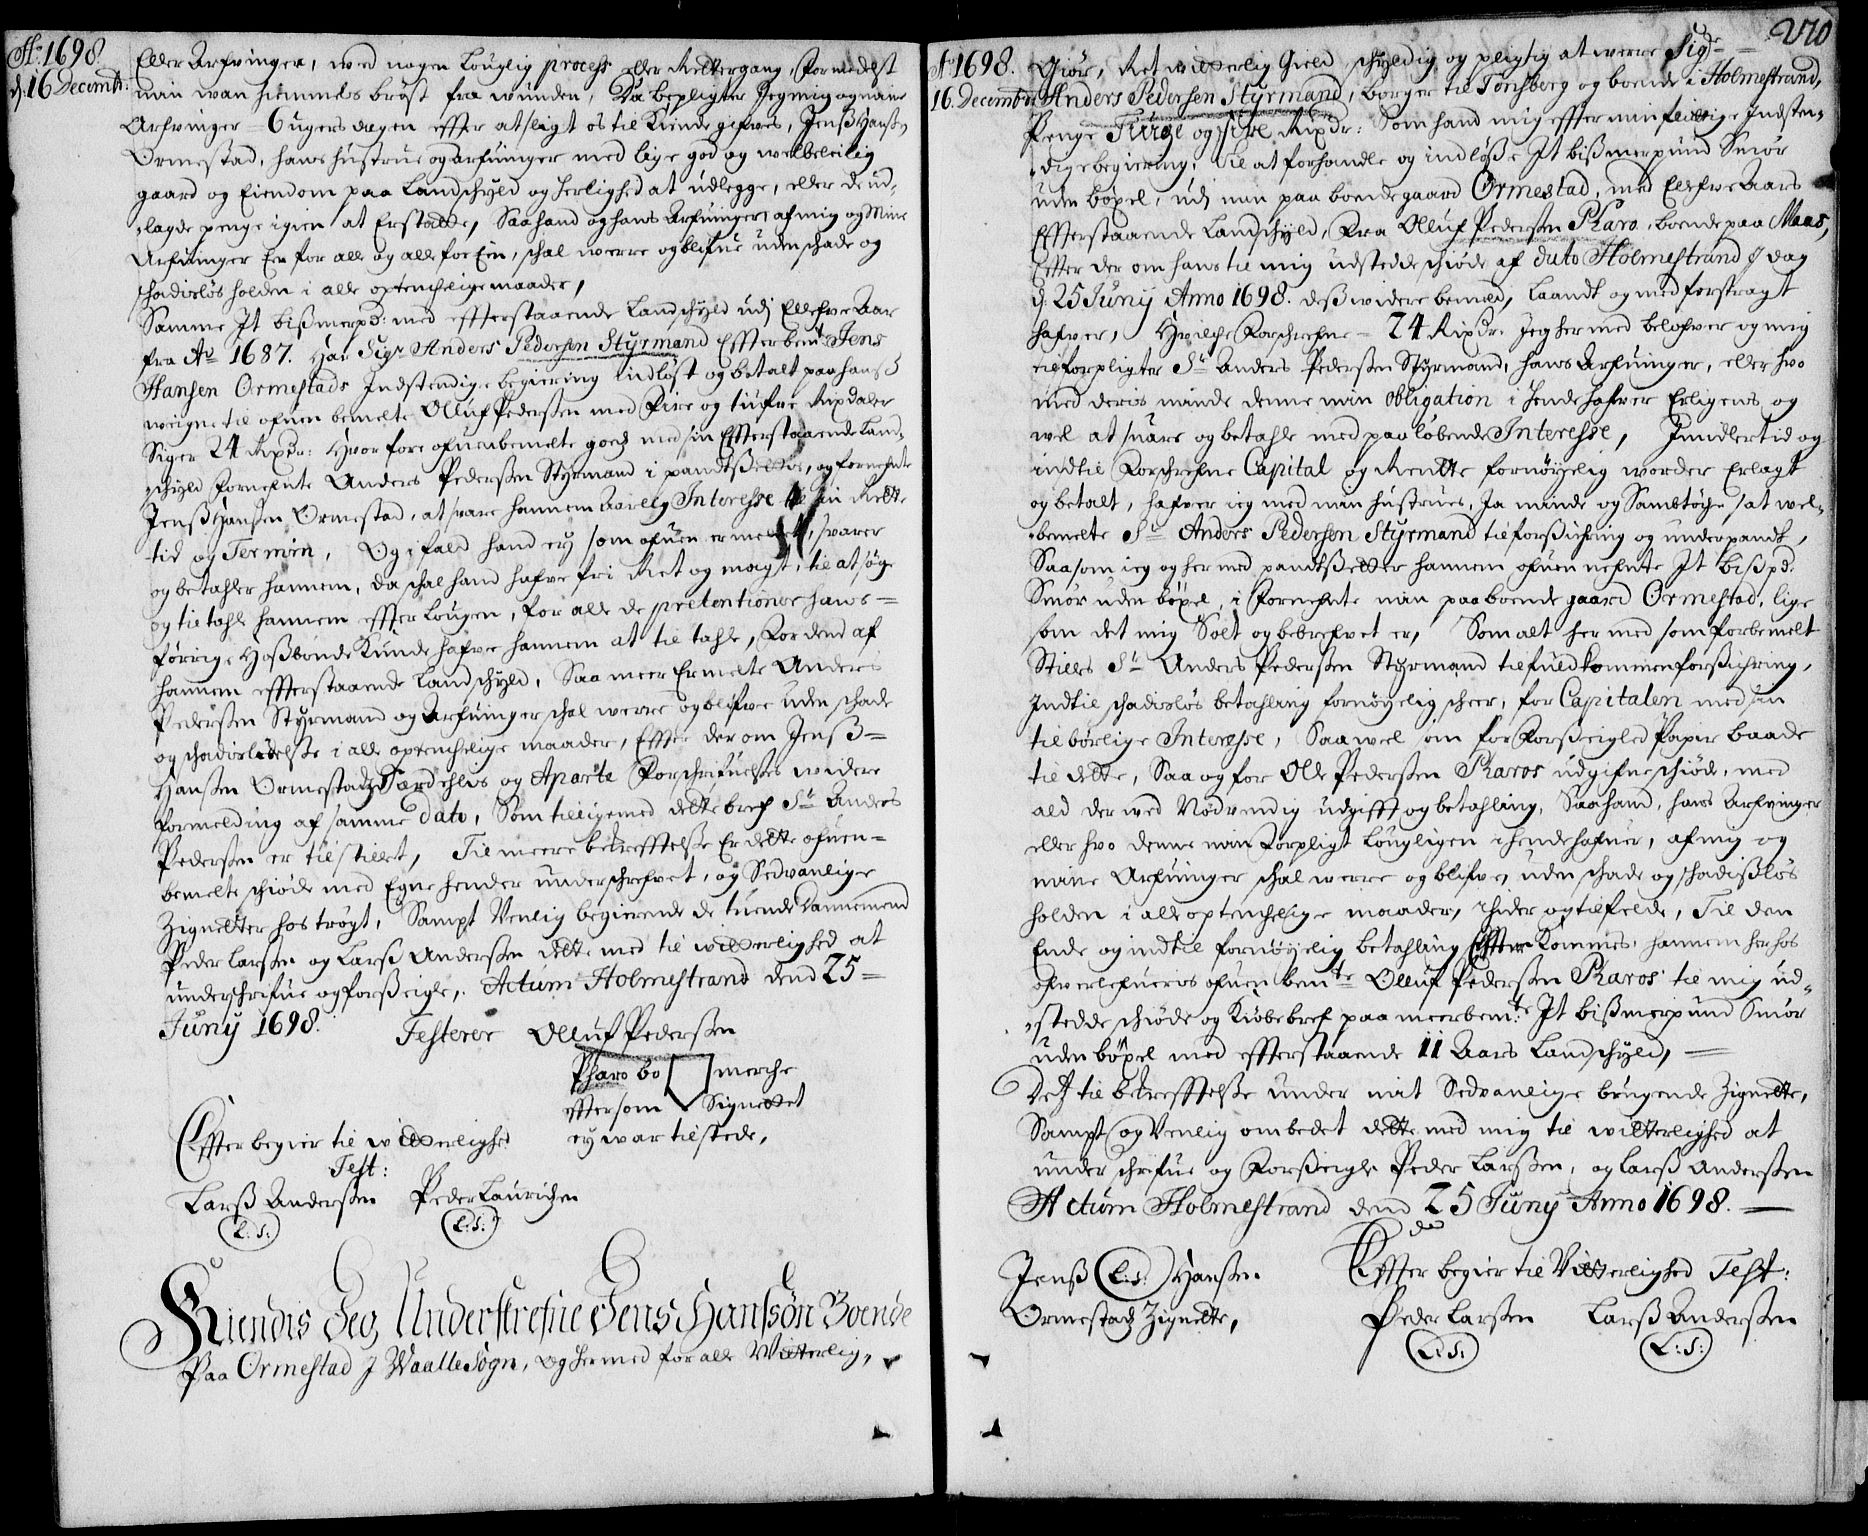 Ao 1698.
d. 16 Decemb:
Eller Arfvinger, med nogen Louglig process eller Rettergang, formedelst
min wan hiemmels bröst fra wunden, Da bepligter Jeg mig og mine
Arfvinger 6 ugers dagen efter at sligt os til Kiende gifves, Jenß Hansen
Ormestad, hans hustrue og arfuinger med lige god og welbeleilig
gaard og Eiendom paa Landschyld og herlighed at udlegge, eller de ud-
lagde penge igien at Erstatte, Saa hand og hans Arfuinger af mig og Mine
Arfuinger Een for all og all for Een, schal werre og blifue uden schade og
schadislös holden i alle optenchelige maader,
Samme Jt bißmerpd: med effterstaaende Landschyld udj Ellefve Aar
fra Ao 1687. Har Sigr Anders Pedersen Styrmand Effter bemte Jens
Hansen Ormestads Jndstendige begiering indlöst og betalt paa hanß
weigne til ofuenbemelte Olluf Pederßen med Fire og tiufve Rixdaler
Siger 24 Rixdr: Hvorfore ofuenbemelte goeds med sin Effterstaaende Land-
schyld fornefnte Anders Pederßen Styrmand i pandtsettes, og fornefnte
Jenß Hanßen Ormestad, at svare hannem Aarlig Interesse til sin Rette
tid og Termin, Og ifald hand ey som ofuen ermeldt, svarer
og betahler hannem, da schal hand hafve fri Ret og magt, til at söge
og tiltahle hannem effter Lougen, for alle de prætentioner hans
forrige Hoßbonde Kunde hafve hannem at tiltahle, For dend af
hannem effterstaaende Landschyld, Saa meer Ermelte Anders
Pederßen Styrmand og Arfuinger schal werre og blifve uden schade
og schadislödelße i alle optenchelige maader, Effter der om Jenß
Hanßen Ormestads Særdehlis og Aparte Forschrifuelses widere
formelding af samme dato, Som tilligemed dette bref Sr Anders
Pederßen er tilstillet, Til meere bekrefftelße Er dette ofuen-
bemelte schiöde med Egne hender underschrefvet, og Sedvanlige
Zignetter hoströgt, Sampt Venlig begierende de tuende Dannemend
Peder Larßen og Larß Anderßen dette med til witterlighed at
underschrifue og forßeigle, Actum Holmestrand dend 25
Junij 1698. Testerer Olluf Pederßen
Pharo bo merche
eftersom Signettet
ey war tilstede,
Effter begier til witterlighed
Test:
Larß Anderßen Peder Laurizen
L: S: L: S:
Kiendis Jeg Underskrefne Jens Hanßön Boende
Paa Ormestad J Waalle Sogn, Og hermed for alle Witterlig,
270
Ao 1698.
16. Decembr:
Giör, Ret witterlig Gield schyldig og pligtig at werre Sigr
Anders Pedersen Styrmand, borger til Tonsberg og boende i Holmestrand,
Penge Tiuge og fire Rixdr: Som hand mig effter min flittige Jndsten-
dige begiering, til at forhandle og indlöße Jt bißmerpund Smör
uden böxel, udj min paaboende gaard Ormestad, med Ellefve Aars
Effterstaaende Landschyld, Fra Olluf Pedersen Pharo, boende paa Maas,
Effter der om hans til mig udstedde schiöde af dato Holmestrand J dag
d: 25 Junij Anno 1698. deß widere bemeld, laandt og med forstragt
hafver, Hvilche Forschrefne 24 Rixdr. Jeg hermed belofver og mig
tilforpligter Sr Anders Pederßen Styrmand, hans Arfuinger, eller hvo
med deris minde denne min obligation i Hende hafver Erligens og
wel at svare og betahle med paalöbende Interesse, Jmidlertid og
indtil Forschrefne Capital og Rente fornöyelig worder Erlagt
og betalt, hafver ieg med min hustrues, Ja minde og Sambtöche, sat wel-
bemelte Sr Anders Pedersen Styrmand til forßichring og underpandt,
Saasom ieg og hermed pandtßetter hannem ofuennefnte Jt bißpd.
Smör uden böxel, i fornefnte min paaboende gaard Ormestad, lige
som det mig Solt og bebrefvet er, Som alt hermed som forbemelt
Stilles Sr Anders Pederßen Styrmand til fuldkommen forßichring,
Jndtil schadislös betahling fornöyelig scheer, for Capitalen med sin
tilbörlige Interesse, Saa wel som for Forßeigled Papir baade
til dette, Saa og for Olle Pederßen Pharos udgifne schiöde, med
ald der wed Nödvendig udgifft og betahling, Saa hand, hans Arfvinger
eller hvo denne min Forpligt Lougligen ihendehafuer, af mig og
mine Arfuinger schal werre og blifve, uden schade og schadißlös
holden i alle optenchelige maader, icheder og tilfelde, Til den
Ende og indtil fornöyelig betahling Effter Kommes, hannem herhos
ofverlefueris ofuenbemte Olluf Pederßen Pharos til mig ud-
stedde schiöde og Kiöbebref paa meerbemte: Jt bißmerpund Smör
uden böxel med effterstaaende 11 Aars Landschyld,
Deß til bekrefftelße under mit Sedvanlige brugende Zignette,
Sampt og Venlig ombedet dette med mig til witterlighed at
underschrifue og Forßeigle Peder Larßen, og Larß Anderßen
Actum Holmestrand dend 25 Junij Anno 1698.
Jenß L: S: Hanßen
Ormestad Zignette,
Effter begier til Vitterlighed Test:
Peder Larßen Larß Anderßen
L: S: L: S: